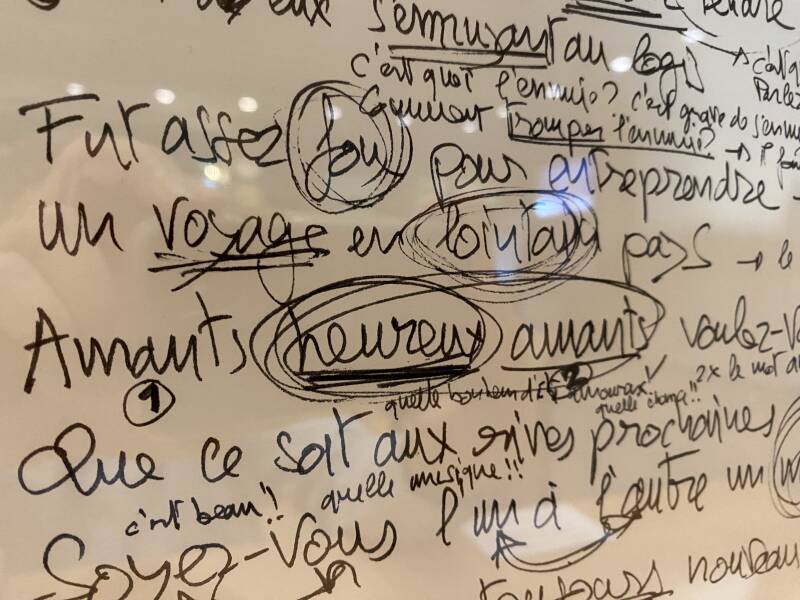 eux s'ennuyant au logis
c'est quoi l'ennuie? c'est grave de s'ennu
Comment tromper l'ennuie? →
Fut assez fou pour entreprendre →
un voyage en lointain pays → le
Amants heureux amants voulez-vo
1 2 2x le mot
quelle bonheur d'être amoureux! quelle chance!!
Que ce soit aux rives prochaines
c'est beau!! quelle musique!!
Soyez-vous l'un à l'autre un
toujours nouveau